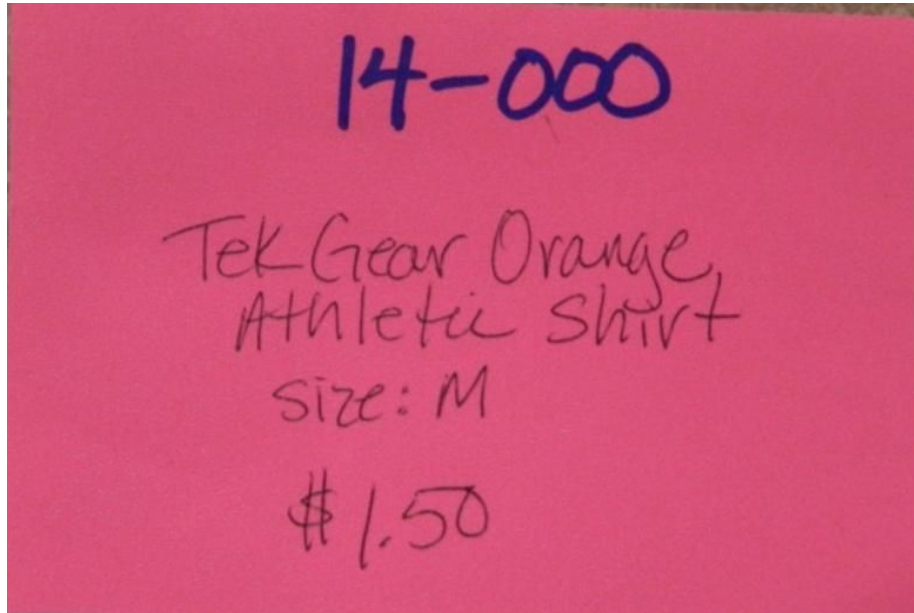 14-000
Tek Gear Orange,
Athletic Shirt
size: M
$1.50